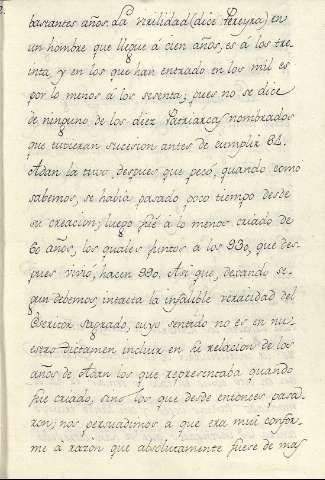 bastantes años. La virilidad (dice Pereyra) en
un hombre que llegue á cien años, es á los tre
inta, y en los que han entrado en los mil es
por lo menos á los sesenta; pues no se dice
de ninguno de los diez Patriarcas nombrados
que tuvieran sucesion antes de cumplir 64.
Adan la tuvo despues que pecó, quando como
sabemos, se habia pasado poco tiempo desde
su creacion; luego fué á lo menos criado de
60 años, los quales juntos a los 930, que des-
pues vivio, hacen 990. Asi que, dexando se-
gun debemos, intacta la infalible veracidad del
Escritor Sagrado, cuyo sentido no es en nu-
estro dictamen incluir en la relacion de los
años de Adan los que representaba quando
fue criado, sino los que desde entonces pasa-
ron; nos persuadimos a que era mui confor-
me à razon que absolutamente fuese de mas